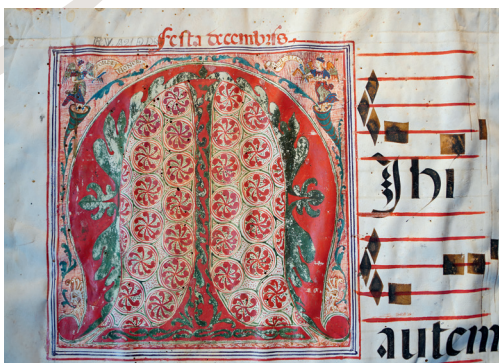 festa decembris.
MIhi
autem